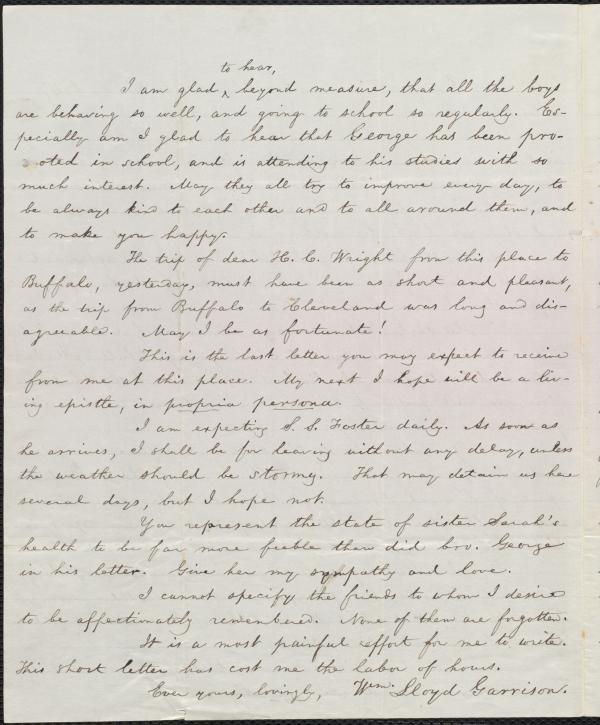 to hear,
I am glad ‸ beyond measure, that all the boys
are behaving so well, and going to school so regularly. Es-
pecially am I glad to hear that George has been pro-
oted in school, and is attending to his studies with so
much interest. May they all try to improve every day, to
be always kind to each other and to all around them, and
to make you happy.
The trip of dear H. C. Wright from this place to
Buffalo, yesterday, must have been as short and pleasant,
as the trip from Buffalo to Cleveland was long and dis-
agreeable. May I be as fortunate!
This is the last letter you may expect to receive
from me at this place. My next I hope will be a liv-
ing epistle, in propria persona.
I am expecting S. S. Foster daily. As soon as
he arrives, I shall be for leaving without any delay, unless
the weather should be stormy. That may detain us here
several days, but I hope not.
You represent the state of sister Sarah's
health to be far more feeble than did bro. George
in his letter. Give her my sympathy and love.
I cannot specify the friends to whom I desire
to be affectionately remembered. None of them are forgotten.
It is a most painful effort for me to write.
This short letter has cost me the labor of hours.
Ever yours, lovingly, Wm. Lloyd Garrison.